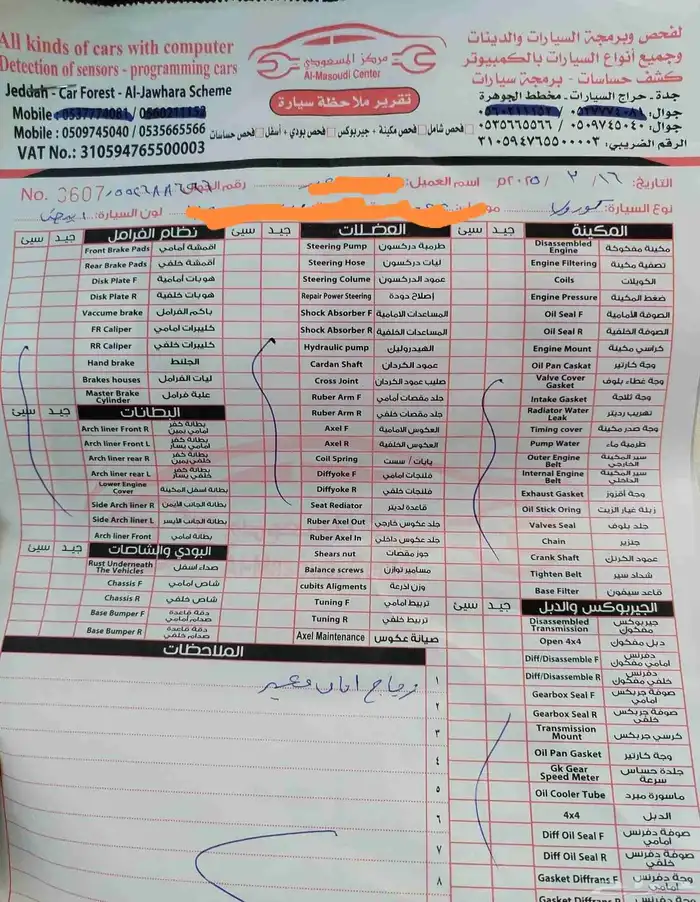 All kinds of cars with computer
Detection of sensors - programming cars
Jeddah - Car Forest - Al-Jawhara Scheme
Mobile : 0537774081 / 0560211152
Mobile : 0509745040 / 0535665566
VAT No.: 310594765500003
مركز المسعودي
Al-Masoudi Center
تقرير ملاحظة سيارة
فحص شامل فحص مكينة + جيربوكس فحص بودي + أسفل فحص حساسات
لفحص وبرمجة السيارات والدينات
وجميع أنواع السيارات بالكمبيوتر
كشف حساسات - برمجة سيارات
جدة - حراج السيارات - مخطط الجوهرة
جوال: ٠٥٣٧٧٧٤٠٨١ / ٠٥٦٠٢١١١٥٢
جوال: ٠٥٠٩٧٤٥٠٤٠ / ٠٥٣٥٦٦٥٥٦٦
الرقم الضريبي: ٣١٠٥٩٤٧٦٥٥٠٠٠٠٣
التاريخ: ١٦ / ٢ / ٢٠٢٥م
اسم العميل:
No. 3607
نوع السيارة:
لون السيارة: ابيض
المكينة جيد سيئ
Disassembled Engine مكينة مفكوكة
Engine Filtering تصفية مكينة
Coils الكويلات
Engine Pressure ضغط المكينة
Oil Seal F الصوفة الأمامية
Oil Seal R الصوفة الخلفية
Engine Mount كراسي مكينة
Oil Pan Caskat وجة كارتير
Valve Cover Gasket وجة غطاء بلوف
Intake Gasket وجة ثلاجة
Radiator Water Leak تهريب رديتر
Timing cover وجة صدر مكينة
Pump Water طرمبة ماء
Outer Engine Belt سير المكينة الخارجي
Internal Engine Belt سير المكينة الداخلي
Exhaust Gasket وجة أقزوز
Oil Stick Oring ربلة عيار الزيت
Valves Seal جلد بلوف
Chain جنزير
Crank Shaft عمود الكرنك
Tighten Belt شداد سير
Base Filter قاعد سيفون
الجيربوكس والدبل جيد سيئ
Disassembled Transmission جيربوكس مفكوك
Open 4x4 دبل مفكوك
Diff/Disassemble F دفرنس امامي مفكوك
Diff/Disassemble R دفرنس خلفي مفكوك
Gearbox Seal F صوفة جربكس امامي
Gearbox Seal R صوفة جربكس خلفي
Transmission Mount كرسي جربكس
Oil Pan Gasket وجة كارتير
Gk Gear Speed Meter جلدة حساس سرعة
Oil Cooler Tube ماسورة مبرد
4x4 الدبل
Diff Oil Seal F صوفة دفرنس امامي
Diff Oil Seal R صوفة دفرنس خلفي
Gasket Diffrans F وجة دفرنس امامي
Gasket Diffrans R
العضلات جيد سيئ
Steering Pump طرمبة دركسون
Steering Hose ليات دركسون
Steering Colume عمود الدركسون
Repair Power Steering إصلاح دودة
Shock Absorber F المساعدات الامامية
Shock Absorber R المساعدات الخلفية
Hydraulic pump الهيدروليك
Cardan Shaft عمود الكردان
Cross Joint صليب عمود الكردان
Ruber Arm F جلد مقصات أمامي
Ruber Arm R جلد مقصات خلفي
Axel F العكوس الامامية
Axel R العكوس الخلفية
Coil Spring يايات / سست
Diffyoke F فلنجات امامي
Diffyoke R فلنجات خلفي
Seat Rediator قاعدة لديتر
Ruber Axel Out جلد عكوس خارجي
Ruber Axel In جلد عكوس داخلي
Shears nut جوز مقصات
Balance screws مسامير توازن
cubits Aligments وزن اذرعة
Tuning F تربيط امامي
Tuning R تربيط خلفي
Axel Maintenance صيانة عكوس
نظام الفرامل جيد سيئ
Front Brake Pads أقمشة أمامي
Rear Brake Pads أقمشة خلفي
Disk Plate F هوبات أمامية
Disk Plate R هوبات خلفية
Vaccume brake باكم الفرامل
FR Caliper كليبرات امامي
RR Caliper كليبرات خلفي
Hand brake الجلنط
Brakes houses ليات الفرامل
Master Brake Cylinder علبة فرامل
البطانات جيد سيئ
Arch liner Front R بطانة كفر امامي يمين
Arch liner Front L بطانة كفر امامي يسار
Arch liner rear R بطانة كفر خلفي يمين
Arch liner rear L بطانة كفر خلفي يسار
Lower Engine Cover بطانة اسفل المكينة
Side Arch liner R بطانة الجانب الأيمن
Side Arch liner L بطانة الجانب الأيسر
Arch liner Front بطانة امامي
البودي والشاصات جيد سيئ
Rust Underneath The Vehicles صداء اسفل
Chassis F شاص امامي
Chassis R شاص خلفي
Base Bumper F دقة قاعدة صدام أمامي
Base Bumper R دقة قاعدة صدام خلفي
الملاحظات
١ زجاج امامي مغير
٢
٣
٤
٥
٦
٧
٨